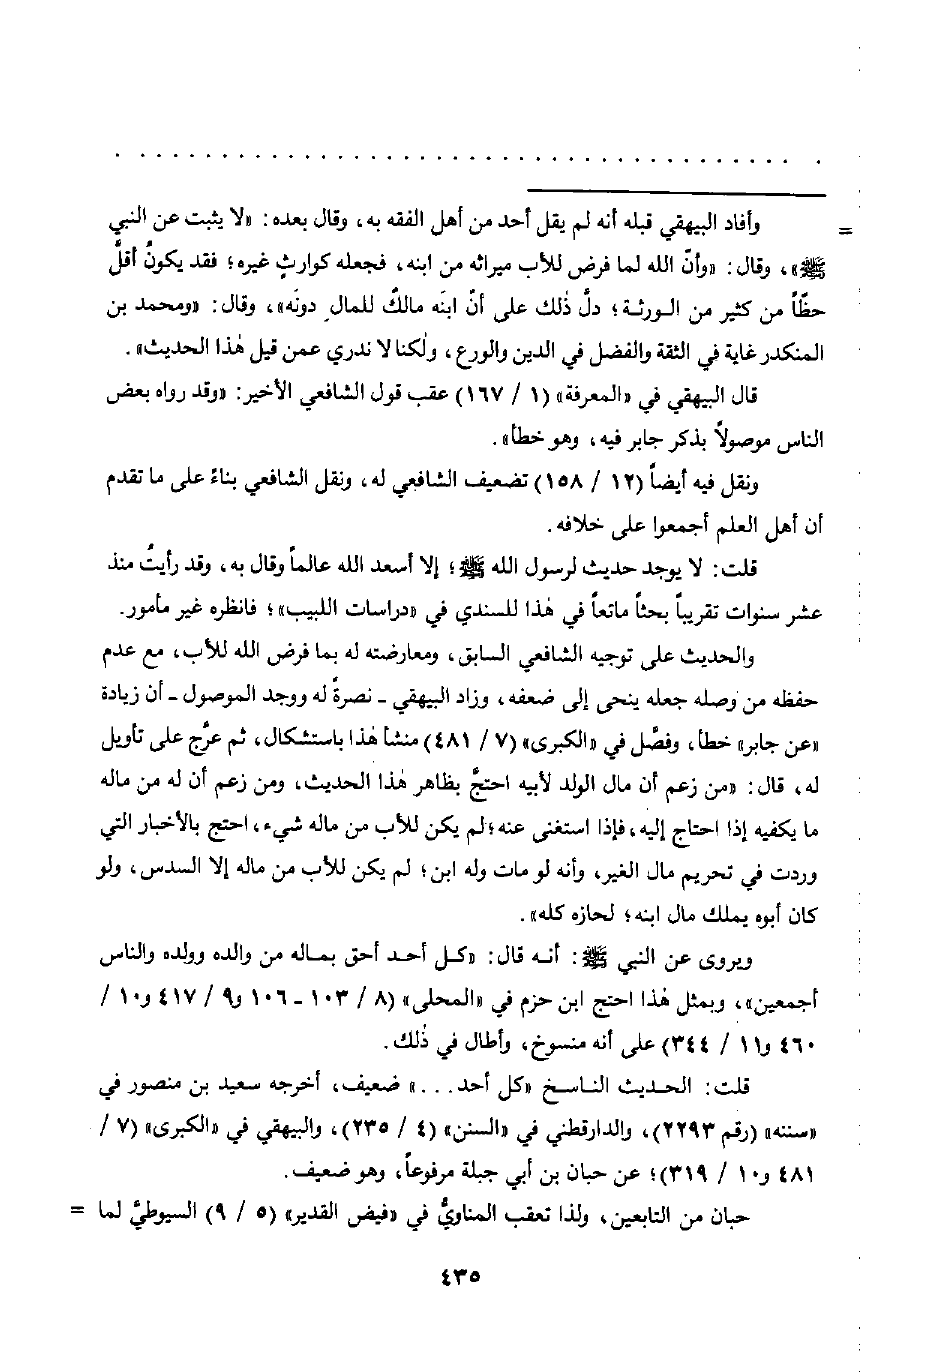 = وأفاد البيهقي قبله أنه لم يقل أحد من أهل الفقه به، وقال بعده: «لا يثبت عن النبي
ﷺ»، وقال: «وأنّ الله لما فرض للأب ميراثه من ابنه، فجعله كوارثٍ غيره؛ فقد يكونُ أقلَّ
حظّاً من كثير من الورثة؛ دلَّ ذٰلك على أنّ ابنَه مالكٌ للمال دونَه»، وقال: «ومحمد بن
المنكدر غاية في الثقة والفضل في الدين والورع، ولٰكنا لا ندري عمن قبل هٰذا الحديث».
قال البيهقي في «المعرفة» (١ / ١٦٧) عقب قول الشافعي الأخير: «وقد رواه بعض
الناس موصولاً بذكر جابر فيه، وهو خطأ».
ونقل فيه أيضاً (١٢ / ١٥٨) تضعيف الشافعي له، ونقل الشافعي بناءً على ما تقدم
أن أهل العلم أجمعوا على خلافه.
قلت: لا يوجد حديث لرسول الله ﷺ؛ إلا أسعد الله عالماً وقال به، وقد رأيتُ منذ
عشر سنوات تقريباً بحثاً ماتعاً في هٰذا للسندي في «دراسات اللبيب»؛ فانظره غير مأمور.
والحديث على توجيه الشافعي السابق، ومعارضته له بما فرض الله للأب، مع عدم
حفظه من وصله جعله ينحى إلى ضعفه، وزاد البيهقي ـ نصرةً له ووجد الموصول ـ أن زيادة
«عن جابر» خطأ، وفصَّل في «الكبرى» (٧ / ٤٨١) منشأ هٰذا باستشكال، ثم عرَّج على تأويل
له، قال: «من زعم أن مال الولد لأبيه احتجَّ بظاهر هٰذا الحديث، ومن زعم أن له من ماله
ما يكفيه إذا احتاج إليه، فإذا استغنى عنه؛ لم يكن للأب من ماله شيء، احتج بالأخبار التي
وردت في تحريم مال الغير، وأنه لو مات وله ابن؛ لم يكن للأب من ماله إلا السدس، ولو
كان أبوه يملك مال ابنه؛ لحازه كله».
ويروى عن النبي ﷺ: أنه قال: «كل أحد أحق بماله من والده وولده والناس
أجمعين»، وبمثل هٰذا احتج ابن حزم في «المحلى» (٨ / ١٠٣ ـ ١٠٦ و٩ / ٤١٧ و١٠ /
٤٦٠ و١١ / ٣٤٤) على أنه منسوخ، وأطال في ذٰلك.
قلت: الحديث الناسخ «كل أحد...» ضعيف، أخرجه سعيد بن منصور في
«سننه» (رقم ٢٢٩٣)، والدارقطني في «السنن» (٤ / ٢٣٥)، والبيهقي في «الكبرى» (٧ /
٤٨١ و١٠ / ٣١٩)؛ عن حبان بن أبي جبلة مرفوعاً، وهو ضعيف.
حبان من التابعين، ولذا تعقب المناويُّ في «فيض القدير» (٥ / ٩) السيوطيَّ لما =
٤٣٥